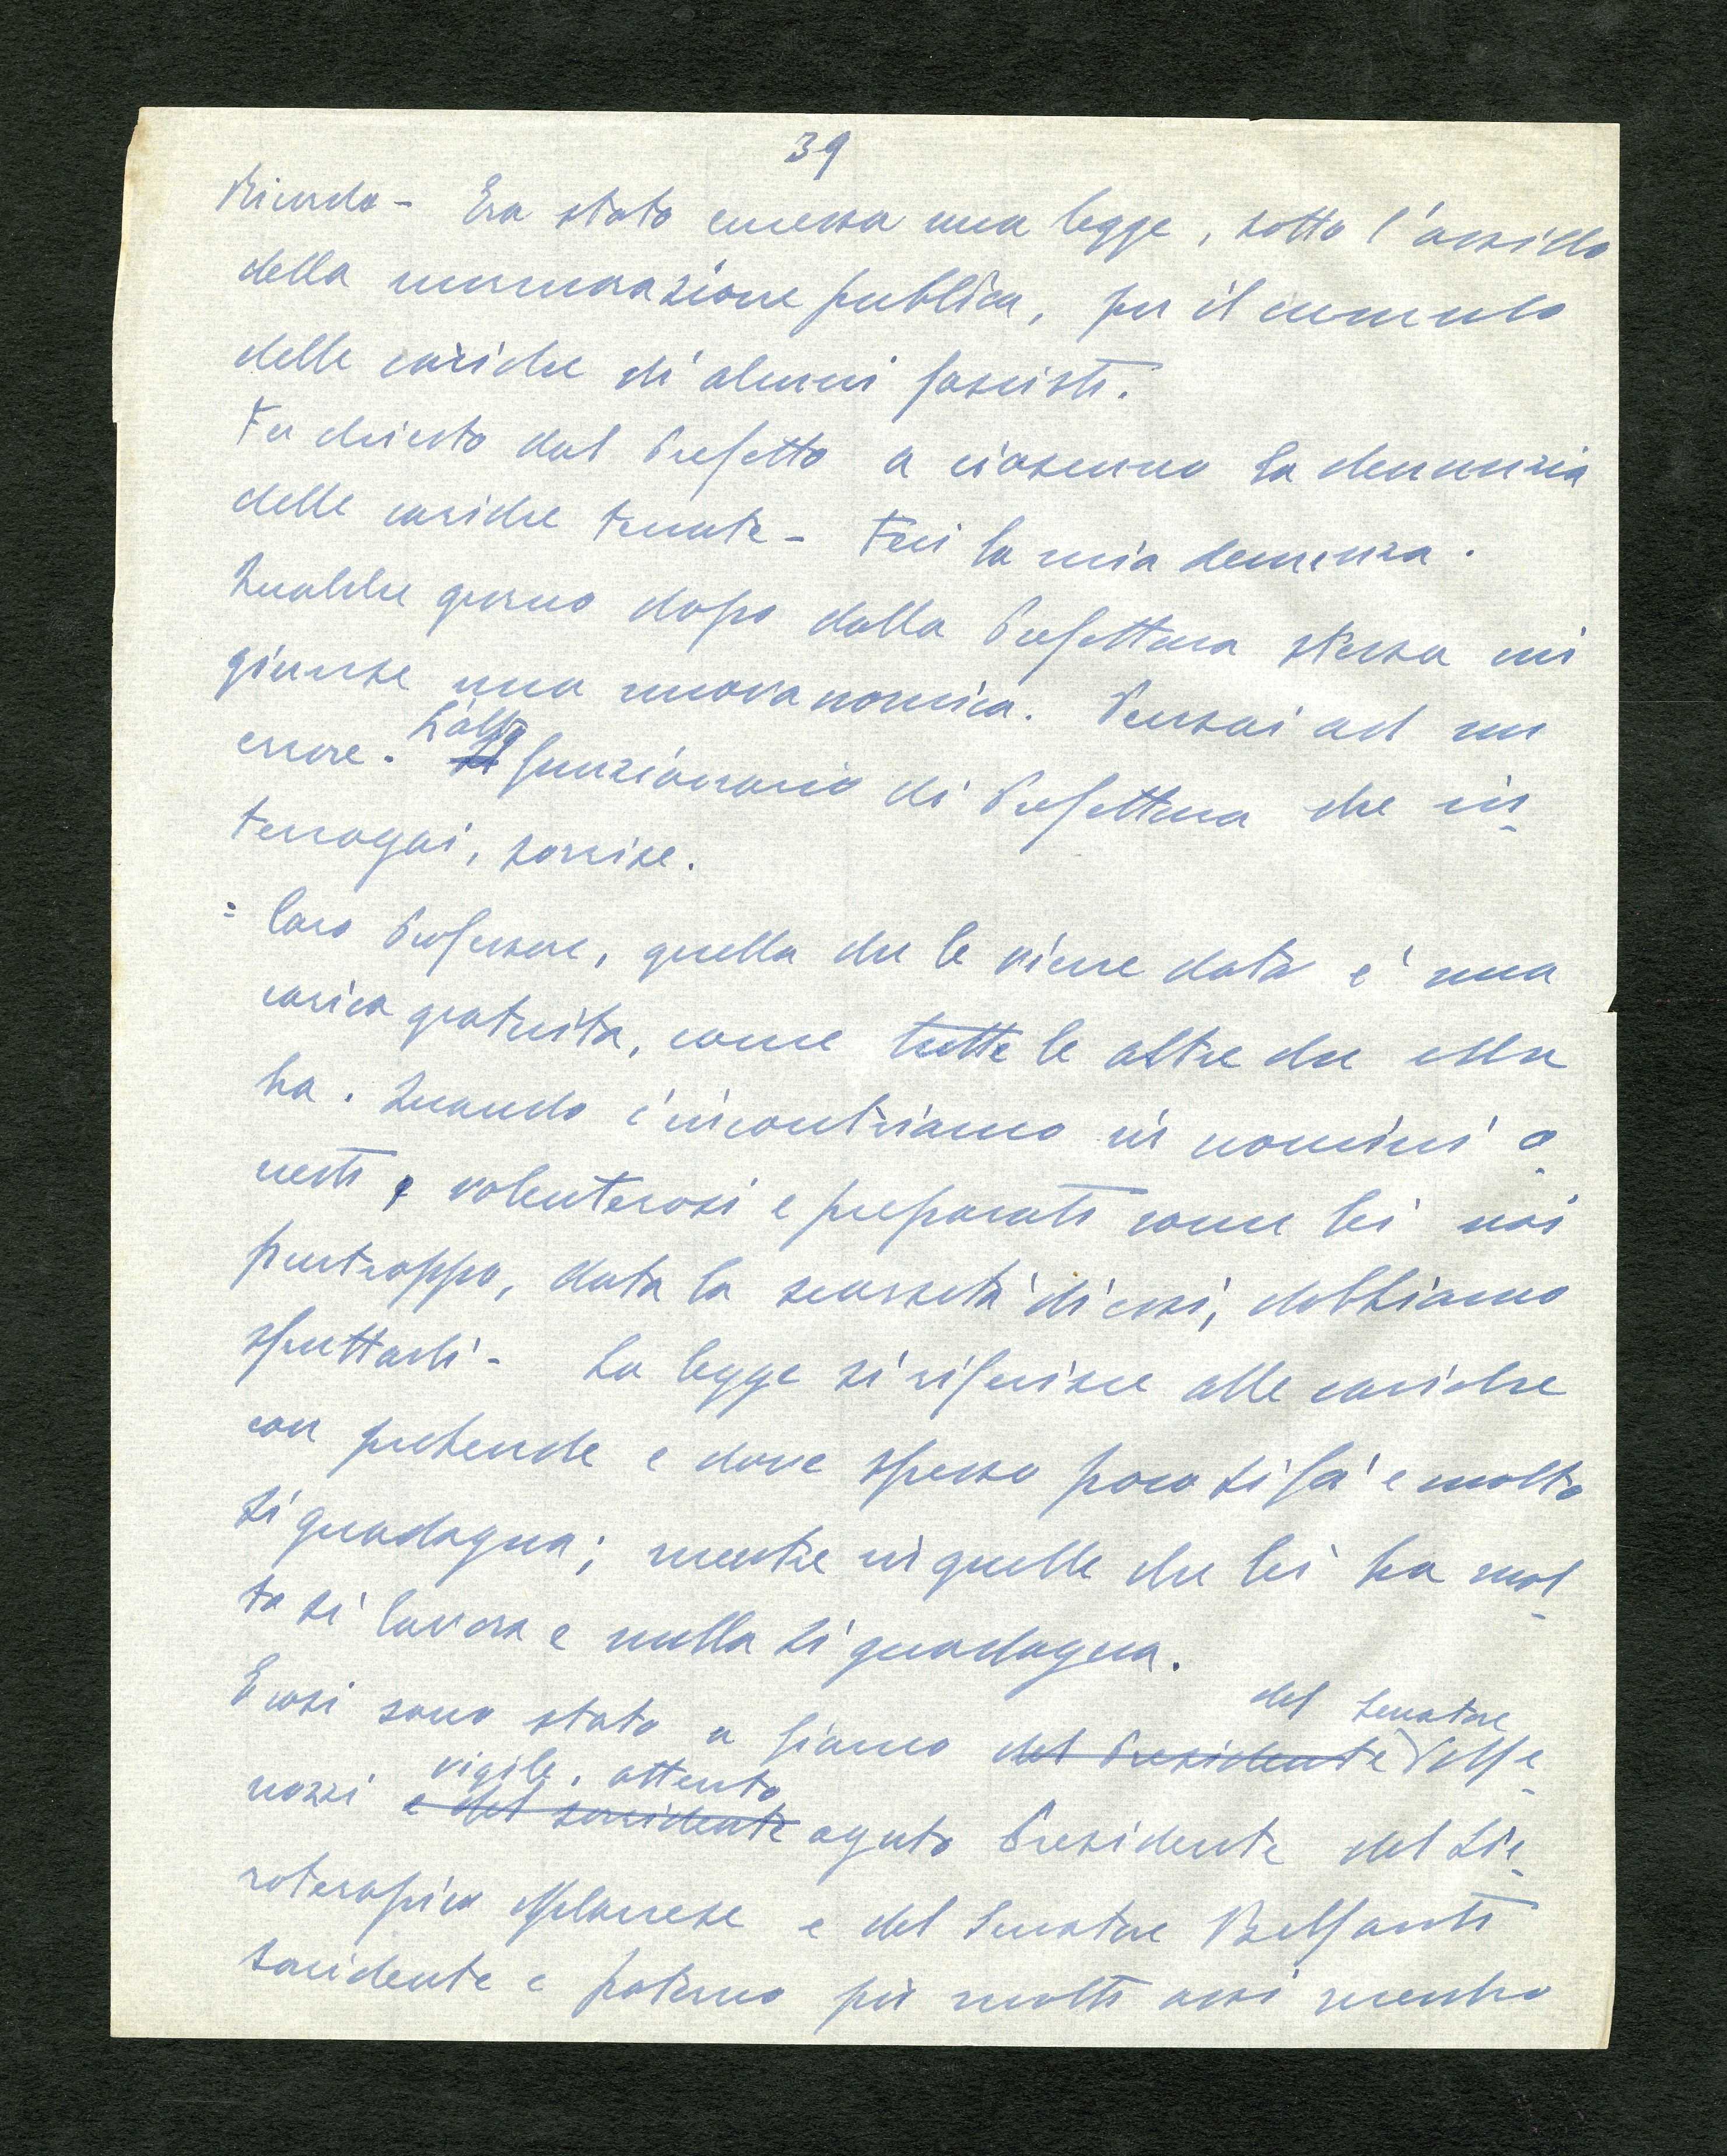 39
Ricordo - Era stata emessa una legge, sotto l'assillo
della mormorazione publica, per il cumulo
delle cariche di alcuni fascisti.
Fu chiesto dal Prefetto a ciascuno la denunzia
delle cariche tenute - Feci la mia denunza.
Qualche giorno dopo dalla Prefettura stessa mi
giunse una nuova nomica. Pensai ad un
errore. L'alto
Il funzionario di Prefettura che in-
terrogai, sorrise.
= Caro Professore, quella che le viene data è una
carica gratuita, come tutte le altre che ella
ha. Quando c'incontriamo in uomini o-
nesti, volenterosi e preparati come lei noi
purtroppo, data la scarsità di essi, dobbiamo
sfruttarli - La legge si riferisce alle cariche
con prebende e dove spesso poco si fa' e molto
si guadagna; mentre in quelle che lei ha mol-
to si lavora e nulla si guadagna.
E così sono stato a fianco del Presidente del Senatore
nozzi e del sorridente vigile, attento
aguto Presidente del Sie-
roterapico Milanese e del Senatore Belfanti
sorridente e paterno per molti anni membro